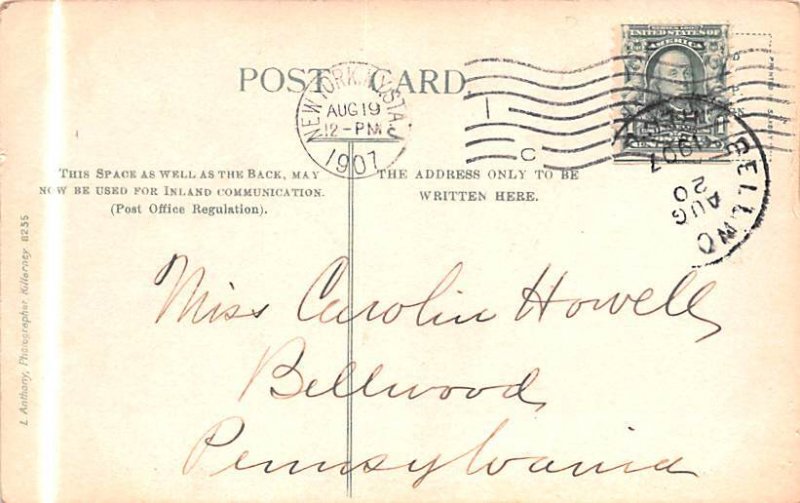 POST CARD.
NEW YORK, N.Y. STA. C
AUG 19
12-PM
1907
1
C
SERIES 1902
UNITED STATES OF
AMERICA
BELLWO
AUG
20
1907
THIS SPACE AS WELL AS THE BACK, MAY
NOW BE USED FOR INLAND COMMUNICATION.
(Post Office Regulation).
THE ADDRESS ONLY TO BE
WRITTEN HERE.
Miss Carolin Howell
Bellwood
Pennsylvania
L Anthony, Photographer Killarney 8235